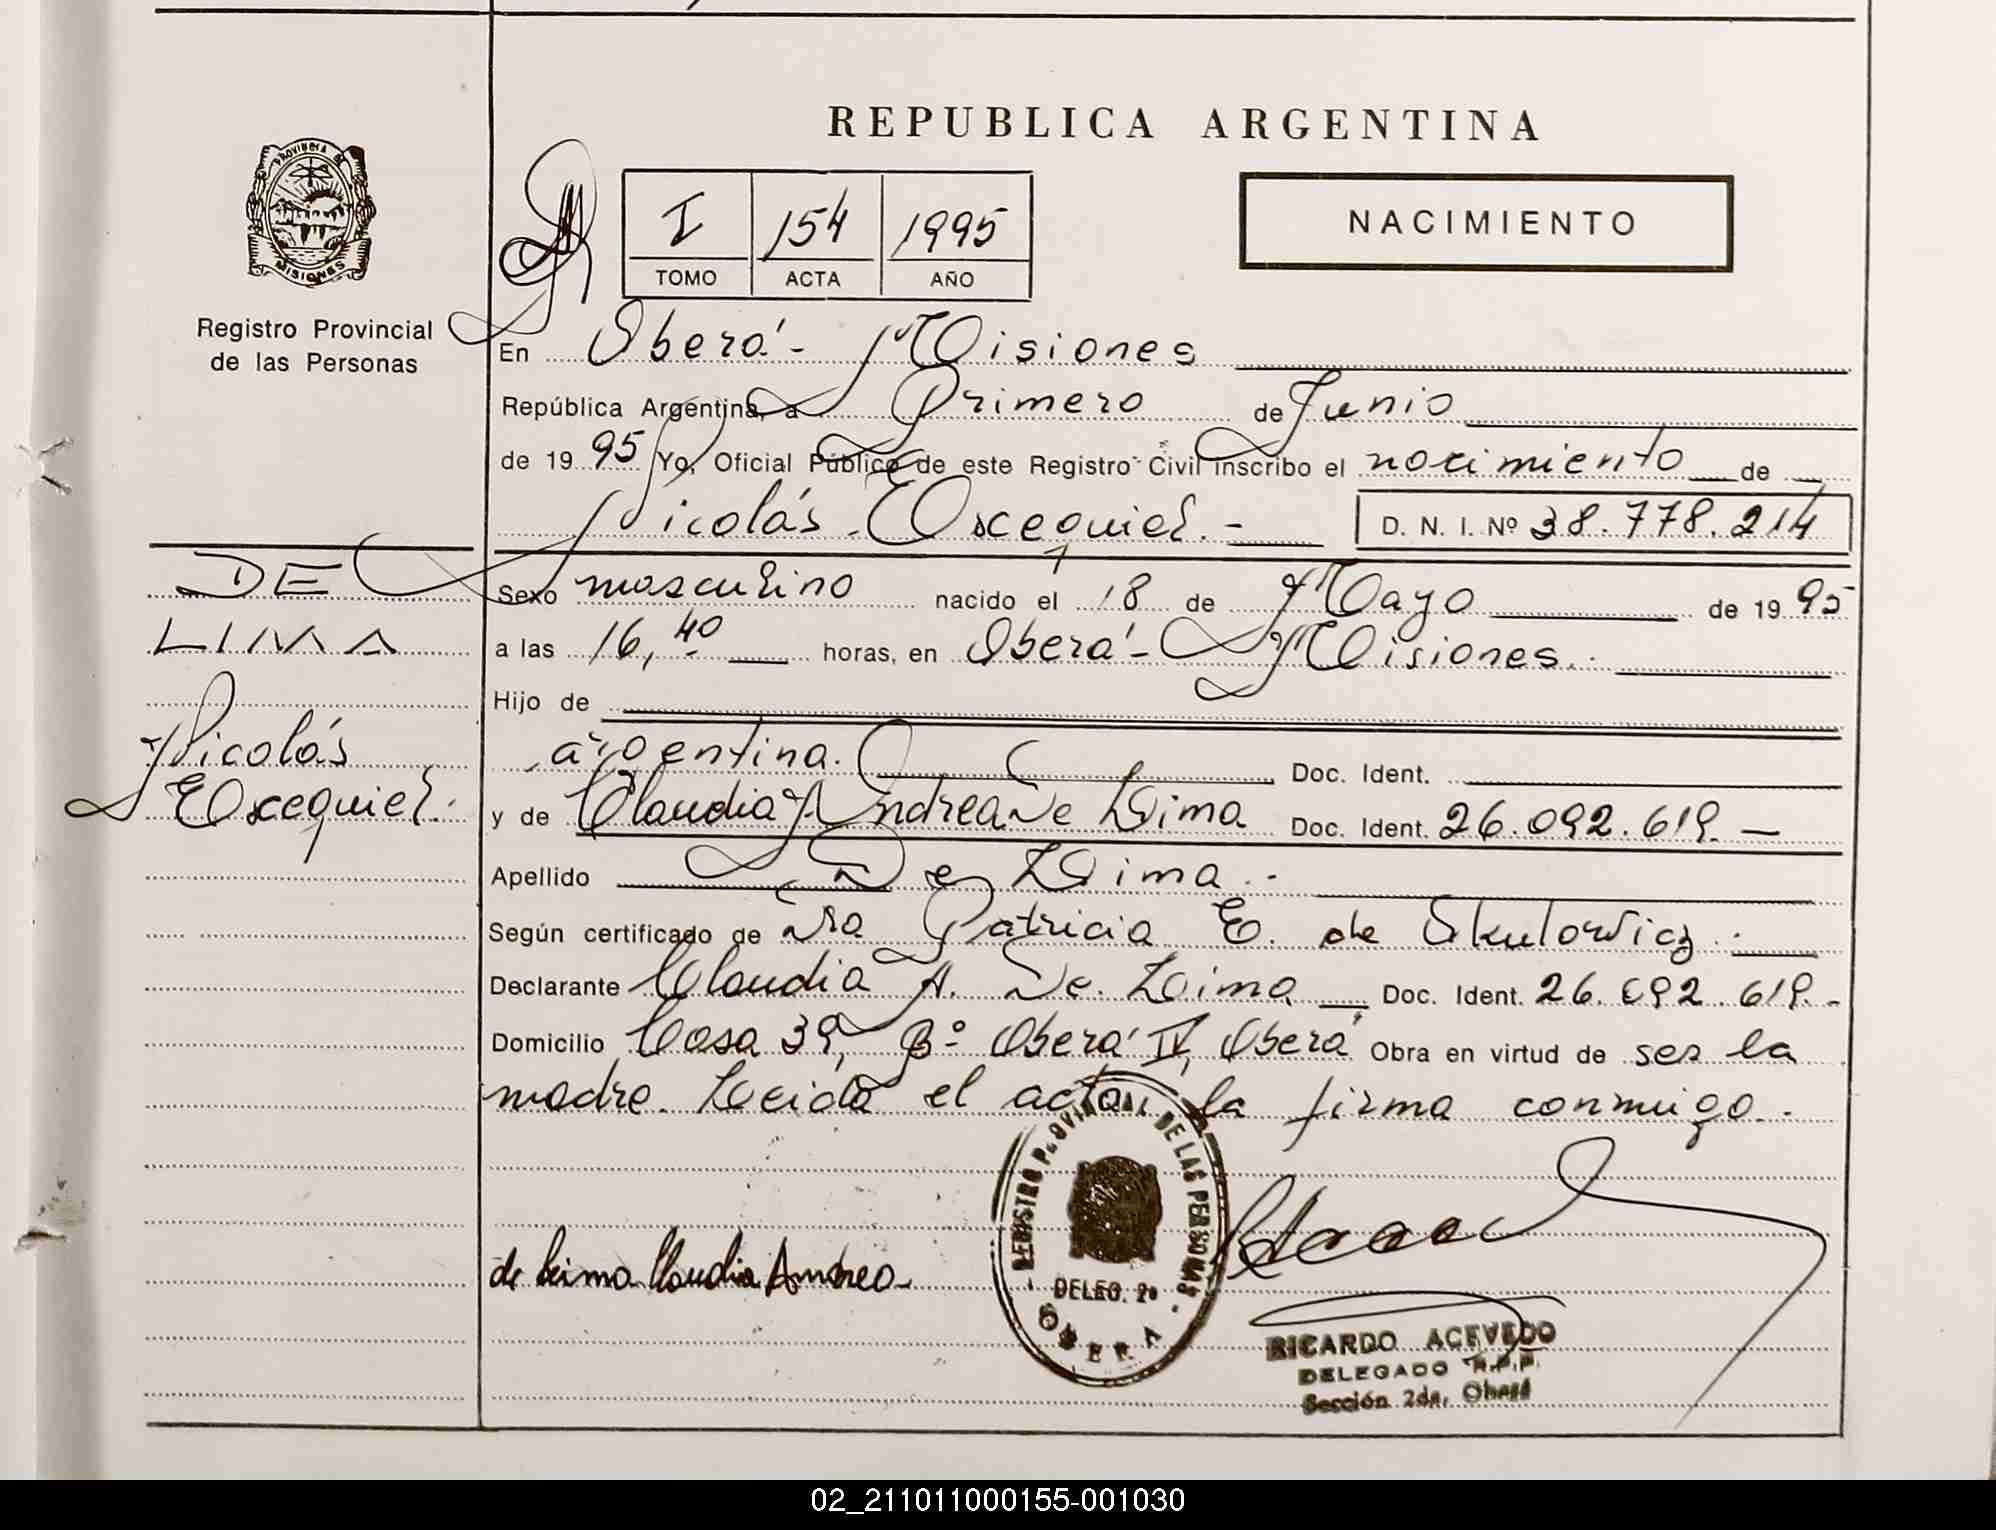 REPUBLICA ARGENTINA
PROVINCIA DE
MISIONES
Registro Provincial
de las Personas
I 154 1995
TOMO ACTA AÑO
NACIMIENTO
En Oberá - Misiones
República Argentina, a Primero de Junio
de 1995 Yo, Oficial Público de este Registro Civil inscribo el nacimiento de
Nicolás Exequiel.- D. N. I. Nº 38.778.214
DE
LIMA
Nicolás
Exequiel.
Sexo masculino nacido el 18 de Mayo de 1995
a las 16,40 horas, en Oberá - Misiones.
Hijo de
argentina. Doc. Ident.
y de Claudia Andrea De Lima Doc. Ident. 26.092.619.-
Apellido De Lima.-
Según certificado de Dra Patricia E. de
Declarante Claudia A. De Lima Doc. Ident. 26.092.619.-
Domicilio Casa 39, Bº Oberá IV, Oberá Obra en virtud de ser la
madre. Leida el acta, la firma conmigo.-
de Leima Claudia Andrea
REGISTRO PROVINCIAL DE LAS PERSONAS
DELEG. 2ª
OBERA
RICARDO ACEVEDO
DELEGADO R.P.P.
Sección 2da. Oberá
02_211011000155-001030